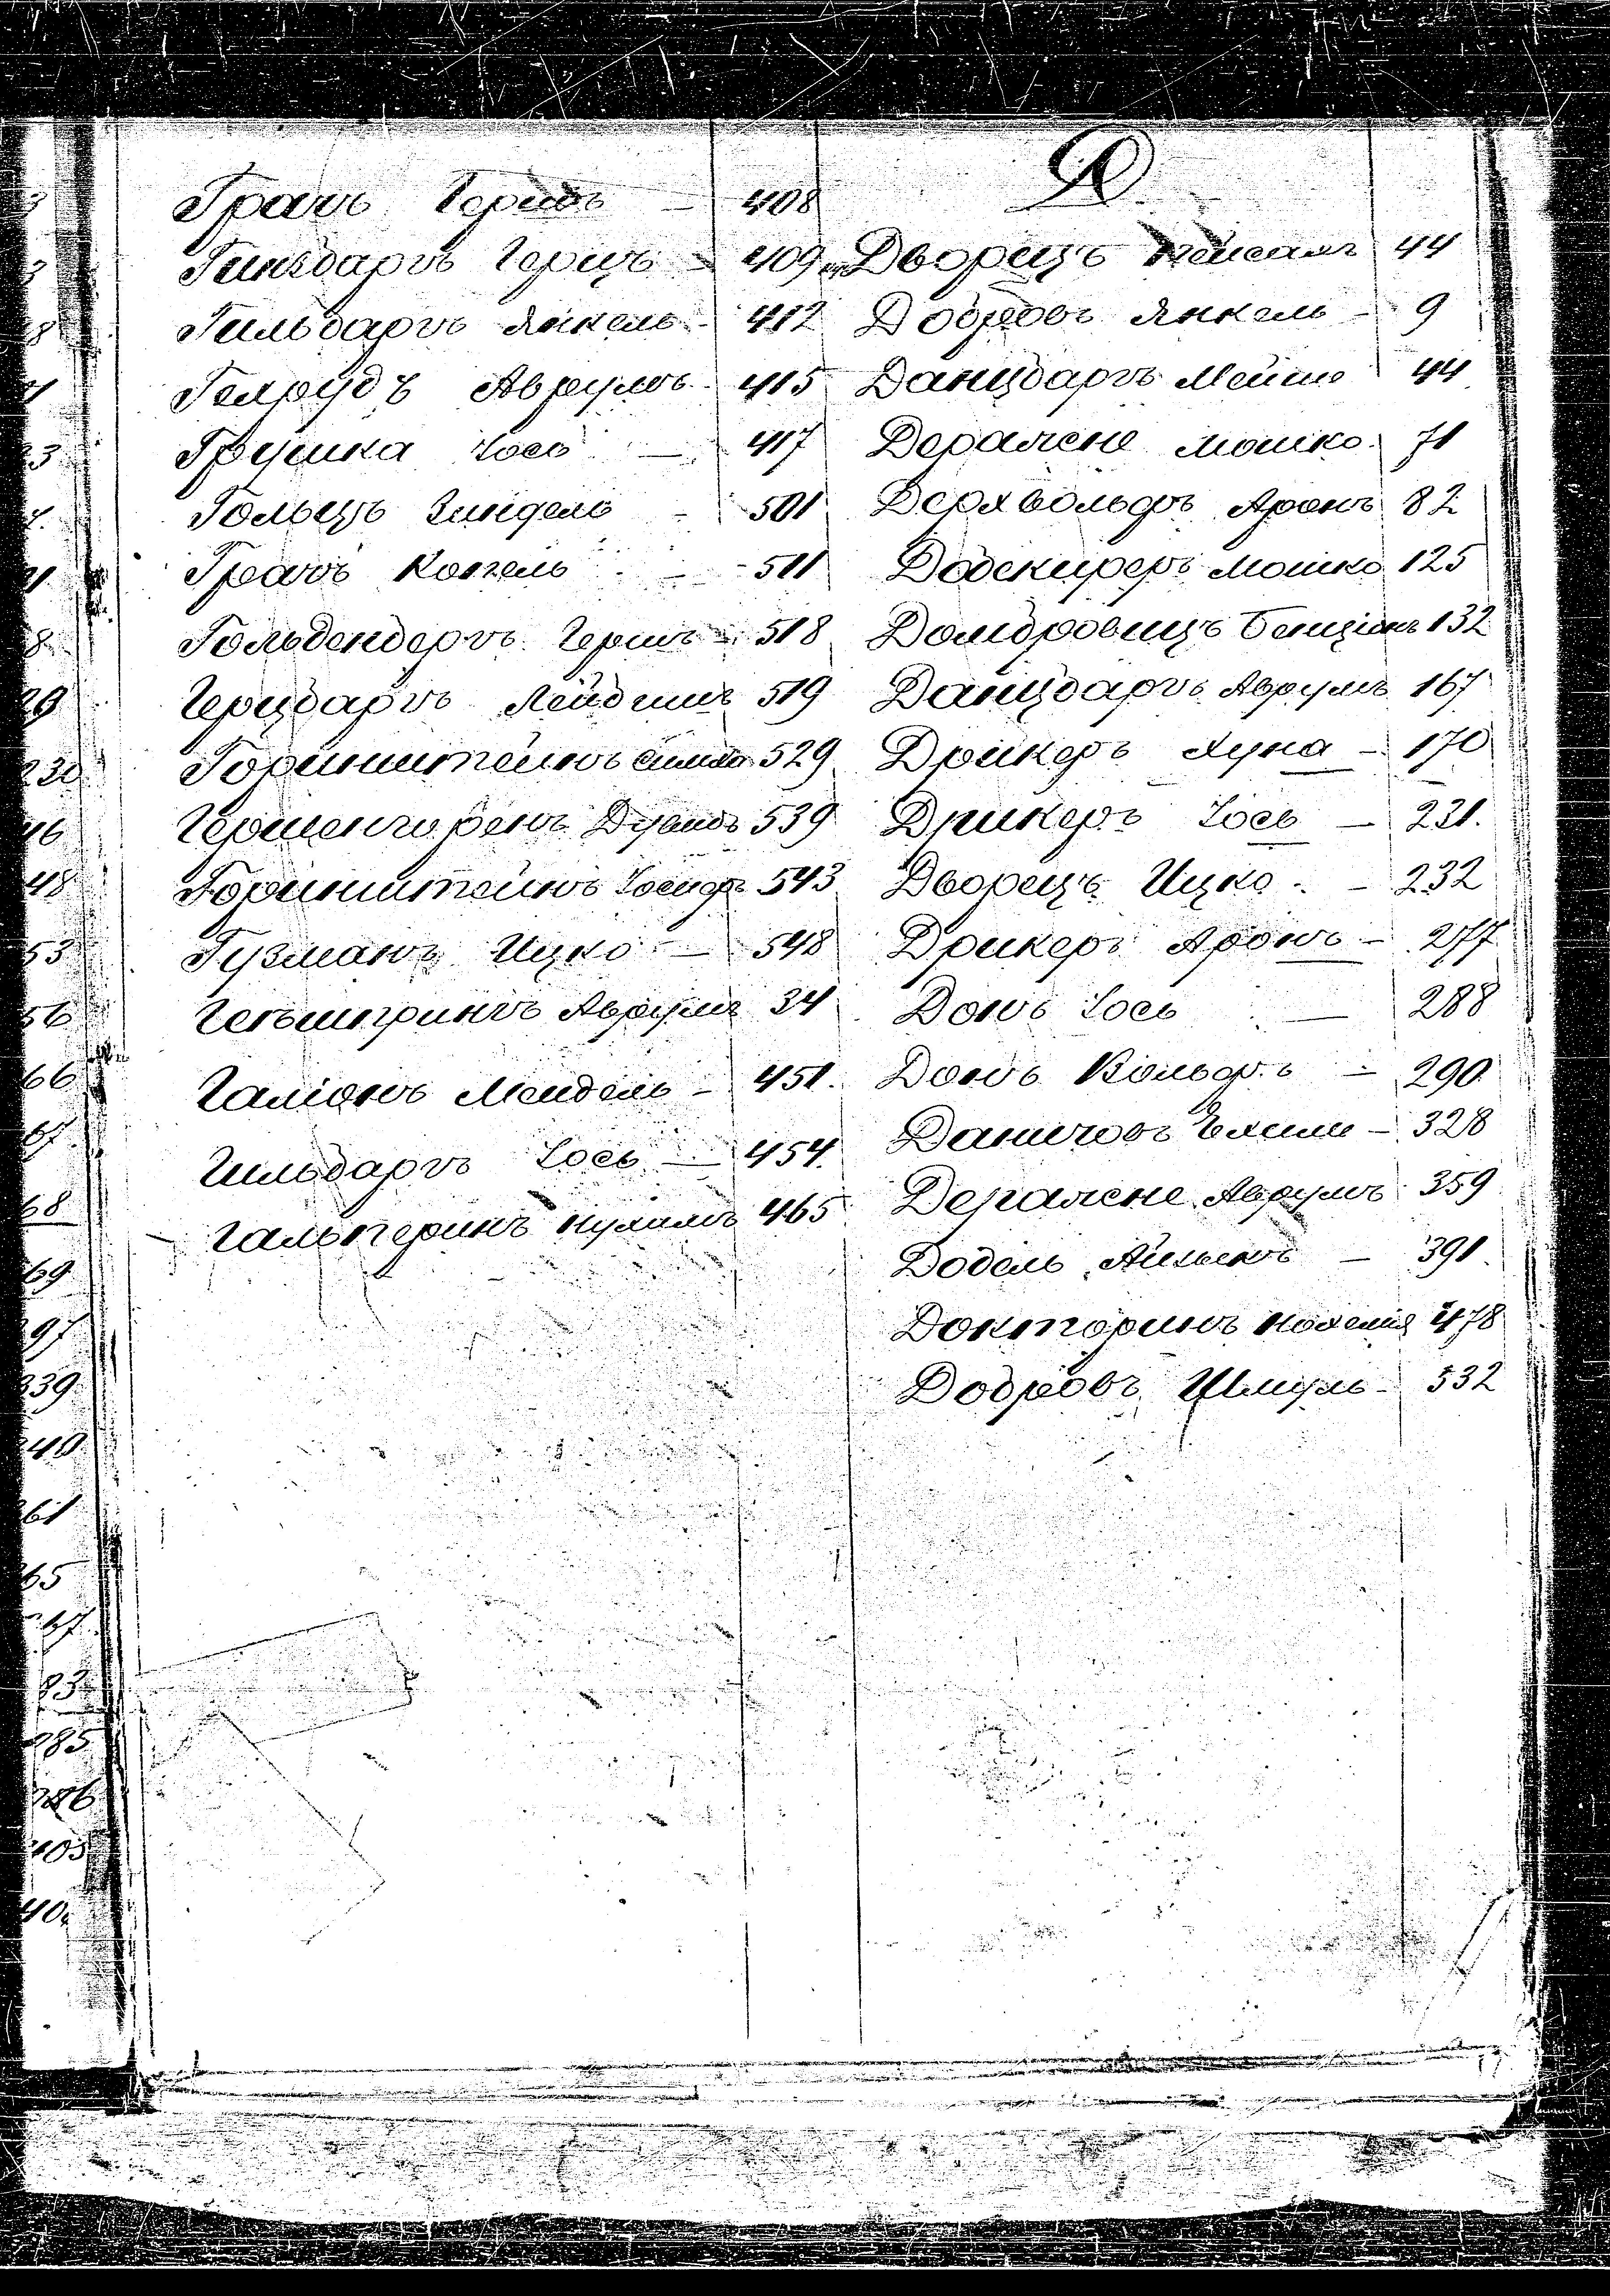 Грачъ Гершъ — 408
Гинзбаргъ Герцъ — 409
Гильбаргъ Янкель — 412
Гелрудъ Аврумъ 415
Грушка Іось — 417
Гольцъ Зиндель — 501
Грачъ Копель — 511
Гольденбергъ Гершъ — 518
Герцбаргъ Лейбишъ 519
Горинштейнъ Симха 529
Гершенгоренъ Дувидъ 539
Горинштейнъ Іосифъ 543
Гузманъ Ицко — 548
Аврумъ 34
Галіонъ Мендель — 451.
Гильбаргъ Іось — 454.
Гальперинъ 465
Д
Дворецъ 44
Добровъ Янкель — 9
Данцбаргъ Мейше 44
Деражне Мошко 71
Дерхвольфъ Аронъ 82
Мошко 125
Домбровицъ Бенціонъ 132
Данцбаргъ Аврумъ 167
Дрикеръ Хуна — 170
Дрикеръ Іось — 231.
Дворецъ Ицко — 232
Дрикеръ Аронъ — 277
Донъ Іось — 288
Донъ Вольфъ — 290
Даничовъ — 328
Деражне Аврумъ 359
Додель Айзыкъ — 391
Докторинъ Нохемія 478
Добровъ Шмуль — 532